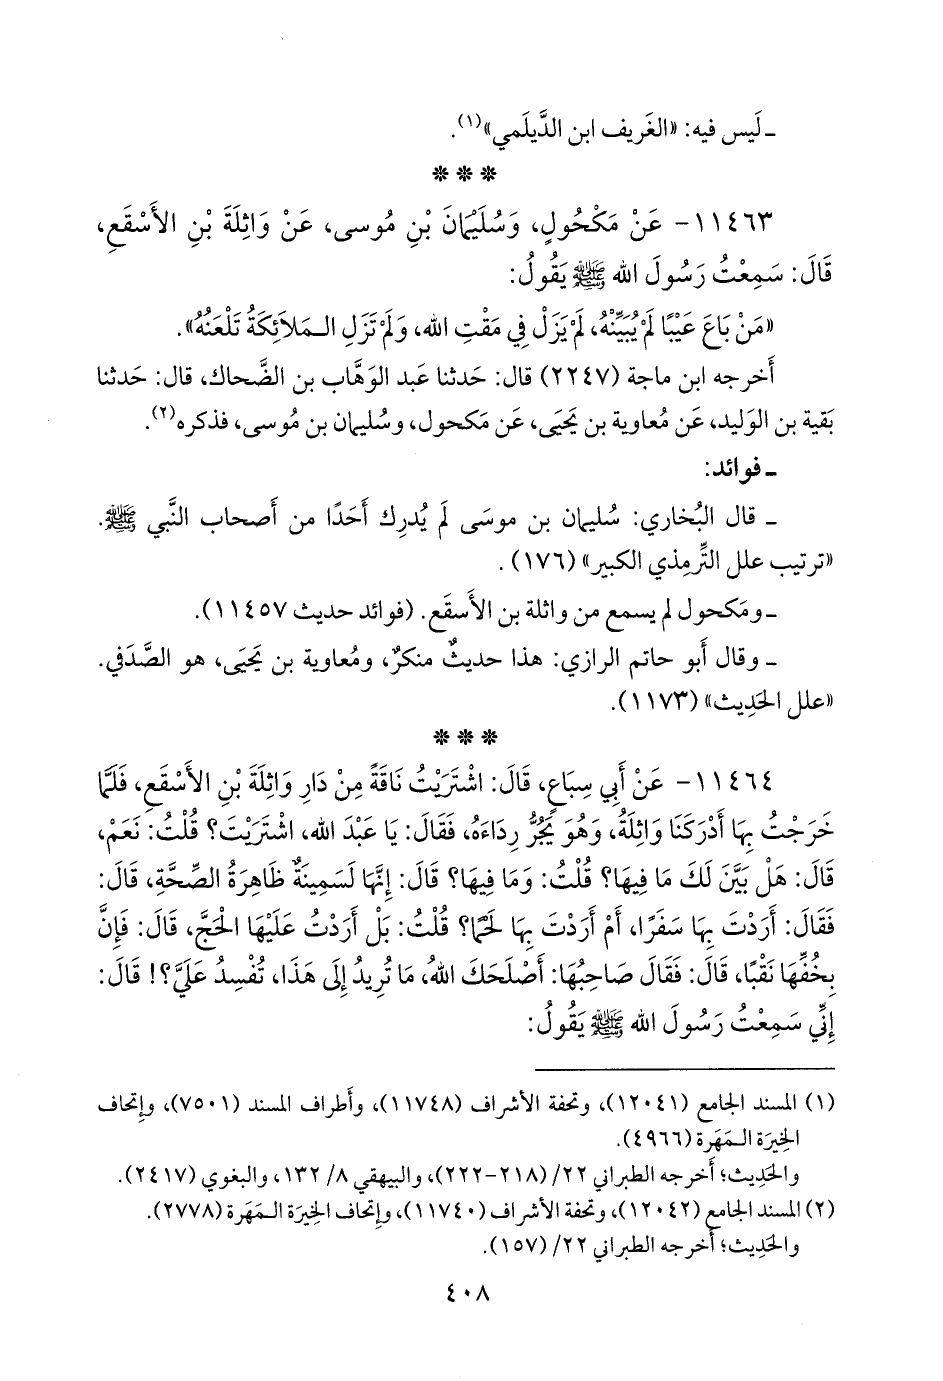 ـ لَيس فيه: «الغَريف ابن الدَّيلَمي»(١).
* * *
١١٤٦٣- عَنْ مَكْحُولٍ، وَسُلَيْمَانَ بْنِ مُوسى، عَنْ وَاثِلَةَ بْنِ الأَسْقَعِ،
قَالَ: سَمِعْتُ رَسُولَ الله ﷺ يَقُولُ:
«مَنْ بَاعَ عَيْبًا لَمْ يُبَيِّنْهُ، لَمْ يَزَلْ فِي مَقْتِ الله، وَلَمْ تَزَلِ الـمَلاَئِكَةُ تَلْعَنُهُ».
أَخرجه ابن ماجة (٢٢٤٧) قال: حَدثنا عَبد الوَهَّاب بن الضَّحاك، قال: حَدثنا
بَقية بن الوَليد، عَن مُعاوية بن يَحيَى، عَن مَكحول، وسُليمان بن مُوسى، فذكره(٢).
ـ فوائد:
ـ قال البُخاري: سُليمان بن موسَى لَم يُدرِك أَحَدًا من أَصحاب النَّبي ﷺ.
«ترتيب علل التِّرمِذي الكبير» (١٧٦).
ـ ومَكحول لم يسمع من واثلة بن الأَسقَع. (فوائد حديث ١١٤٥٧).
ـ وقال أَبو حاتم الرازي: هذا حديثٌ منكرٌ، ومُعاوية بن يَحيَى، هو الصَّدَفي.
«علل الحَدِيث» (١١٧٣).
* * *
١١٤٦٤- عَنْ أَبِي سِبَاعٍ، قَالَ: اشْتَرَيْتُ نَاقَةً مِنْ دَارِ وَاثِلَةَ بْنِ الأَسْقَعِ، فَلَمَّا
خَرَجْتُ بِهَا أَدْرَكَنَا وَاثِلَةُ، وَهُوَ يَجُرُّ رِدَاءَهُ، فَقَالَ: يَا عَبْدَ الله، اشْتَرَيْتَ؟ قُلْتُ: نَعَمْ،
قَالَ: هَلْ بَيَّنَ لَكَ مَا فِيهَا؟ قُلْتُ: وَمَا فِيهَا؟ قَالَ: إِنَّهَا لَسَمِينَةٌ ظَاهِرَةُ الصِّحَّةِ، قَالَ:
فَقَالَ: أَرَدْتَ بِهَا سَفَرًا، أَمْ أَرَدْتَ بِهَا لَحْمًا؟ قُلْتُ: بَلْ أَرَدْتُ عَلَيْهَا الْحَجَّ، قَالَ: فَإِنَّ
بِخُفِّهَا نَقْبًا، قَالَ: فَقَالَ صَاحِبُهَا: أَصْلَحَكَ اللهُ، مَا تُرِيدُ إِلَى هَذَا، تُفْسِدُ عَلَيَّ؟! قَالَ:
إِنِّي سَمِعْتُ رَسُولَ الله ﷺ يَقُولُ:
(١) المسند الجامع (١٢٠٤١)، وتحفة الأشراف (١١٧٤٨)، وأَطراف المسند (٧٥٠١)، وإتحاف
الخِيرَة الـمَهَرة (٤٩٦٦).
والحَدِيث؛ أَخرجه الطبراني ٢٢/ (٢١٨-٢٢٢)، والبيهقي ٨/ ١٣٢، والبغوي (٢٤١٧).
(٢) المسند الجامع (١٢٠٤٢)، وتحفة الأشراف (١١٧٤٠)، وإتحاف الخِيرَة الـمَهَرة (٢٧٧٨).
والحَدِيث؛ أَخرجه الطبراني ٢٢/ (١٥٧).
٤٠٨